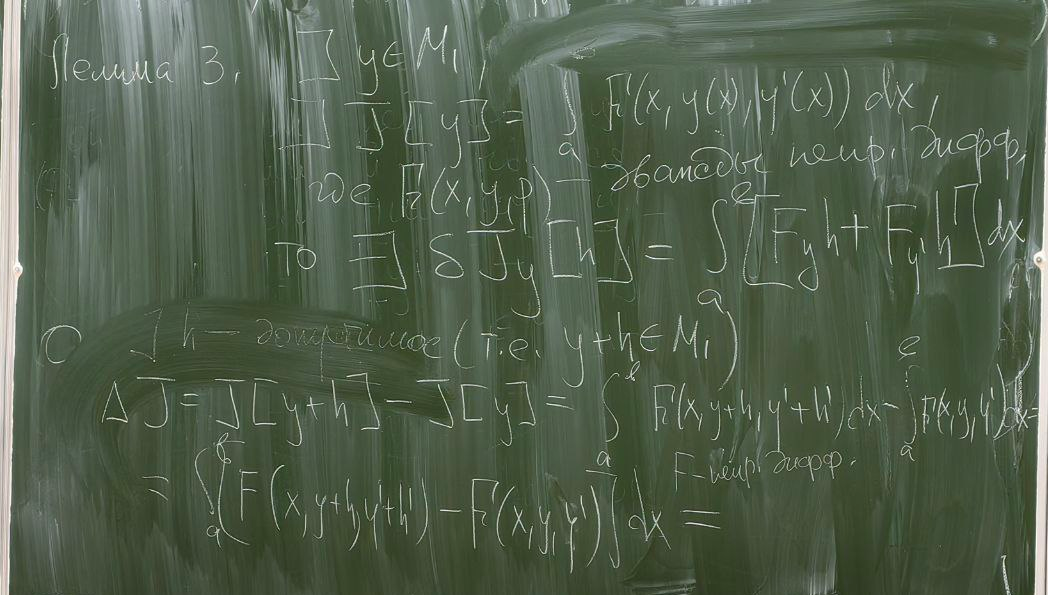 Лемма 3. ] y ∈ M₁,
∃ J[y] = ∫ₐ F(x, y(x), y'(x)) dx,
где F(x, y, p) – дважды непр. дифф.
то ∃ δJ_y[h] = ∫ₐᵇ [F_y h + F_y' h'] dx
О ] h – допустимое (т.е. y+h ∈ M₁)
ΔJ = J[y+h] – J[y] = ∫ₐᵇ F(x, y+h, y'+h') dx – ∫ₐᵇ F(x, y, y') dx =
= ∫ₐᵇ (F(x, y+h, y'+h') – F(x, y, y')) dx =
F – непр. дифф.